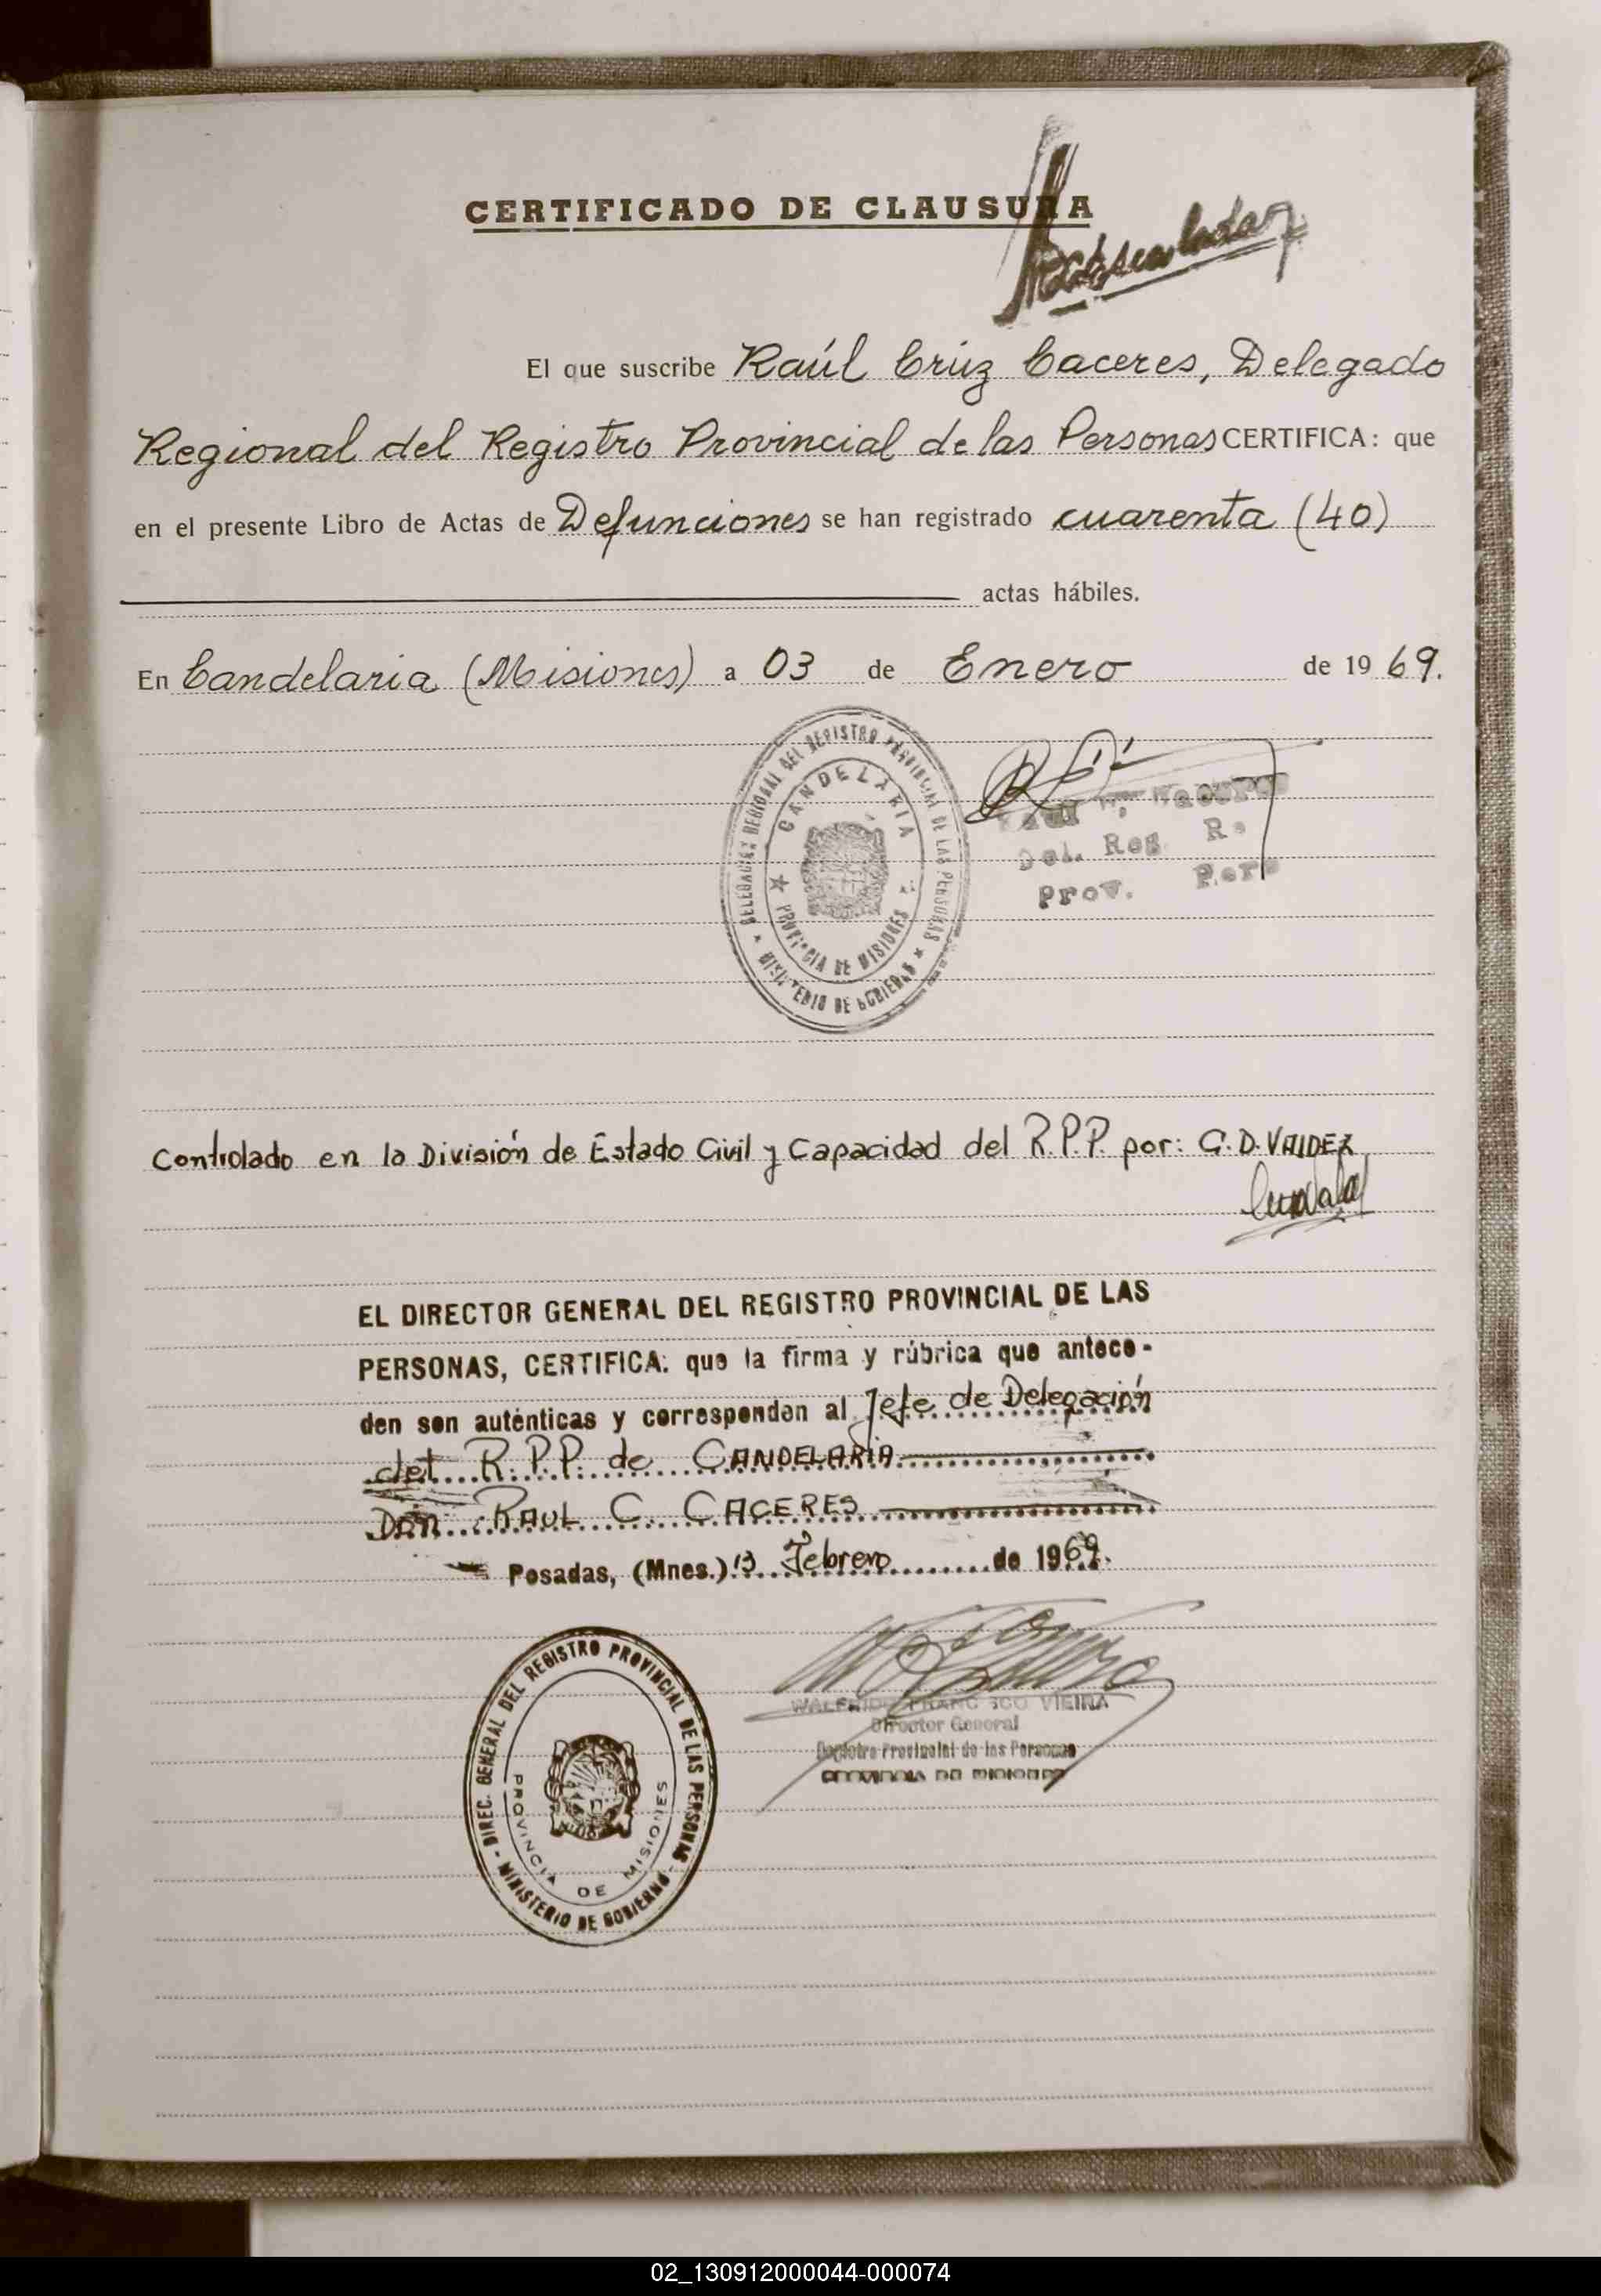 CERTIFICADO DE CLAUSURA
El que suscribe Raúl Crúz Caceres, Delegado
Regional del Registro Provincial de las Personas CERTIFICA: que
en el presente Libro de Actas de Defunciones se han registrado cuarenta (40)
actas hábiles.
En Candelaria (Misiones) a 03 de Enero de 1969.
DELEGACION REGIONAL DEL REGISTRO PROVINCIAL DE LAS PERSONAS
CANDELARIA
PROVINCIA DE MISIONES
MINISTERIO DE GOBIERNO
Del. Reg. R.
Prov. Pers
Controlado en la División de Estado Civil y Capacidad del R.P.P. por: C.D. VALDEZ
EL DIRECTOR GENERAL DEL REGISTRO PROVINCIAL DE LAS
PERSONAS, CERTIFICA: que la firma y rúbrica que antece-
den son auténticas y corresponden al Jefe de Delegación
del R.P.P. de CANDELARIA
Don RAUL C. CACERES
Posadas, (Mnes.) 13 Febrero de 1969.
DIREC. GENERAL DEL REGISTRO PROVINCIAL DE LAS PERSONAS
PROVINCIA DE MISIONES
- MINISTERIO DE GOBIERNO -
WALFRIDO FRANCISCO VIEIRA
Director General
Registro Provincial de las Personas
PROVINCIA DE MISIONES
02_130912000044-000074